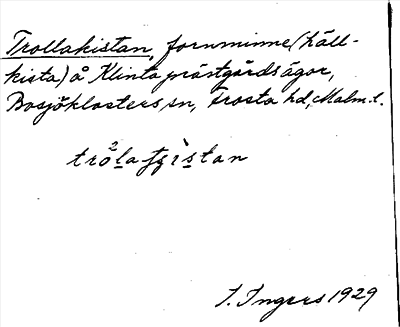 Trollakistan, fornminne (häll-
kista) å Klinta prästgårds ägor,
Bosjöklosters sn, Frosta hd, Malm. l.
trö̀la
I. Ingers 1929